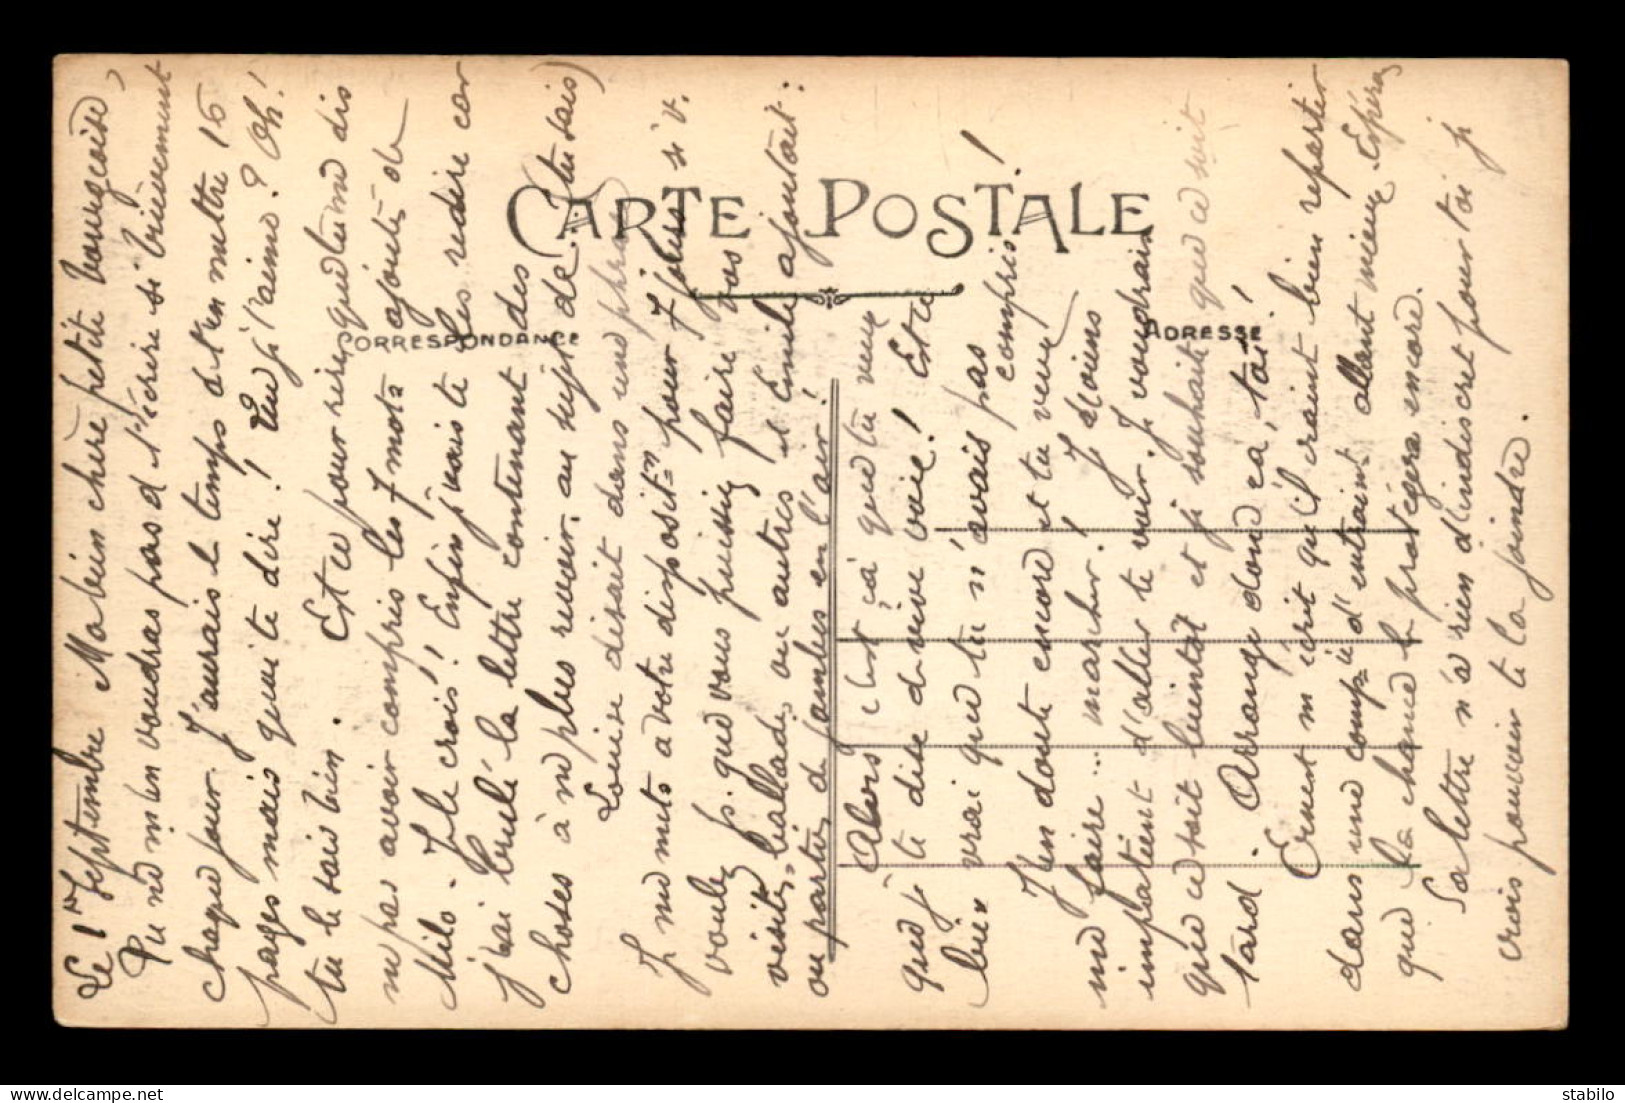 CARTE POSTALE
CORRESPONDANCE
ADRESSE
Le 1er Septembre Ma bien chère petite bourgeoise,
Tu ne m'en voudras pas de t'écrire si brièvement
chaque jour. J'aurais le temps d'en mettre 16
pages mais que te dire ! que j't'aime ? Oh !
tu le sais bien. Est ce pour rire que tu me dis
ne pas avoir compris les 7 mots ajoutés de
Milo. Je le crois ! Enfin j'vais te les redire car
j'ai brulé la lettre contenant des
choses à ne plus revoir. au sujet de (tu sais)
Louise disait dans une phrase
Je me mets à votre disposit=n pour 7 jours si v.
voulez p. que vous puissiez faire vos
visites, ballades ou autres et Emile ajoutait :
ou parties de jambes en l'air !
Alors c'est çà que tu veux
que j'te dise de vive voie ! Est ce
bien vrai que tu n'avais pas compris !
J'en doute encore et tu veux
me faire... marcher ! Je deviens
impatient d'aller te voir. Je voudrais
que ce soit bientôt et je souhaite que ce soit
tard. Arrange donc ça, toi !
Ernest m'écrit qu'il craint bien repartir
dans une comp=ie d'entraint allant mieux. Espérons
que la chance le protègera encore.
Sa lettre n'a rien d'indiscret pour toi je
crois pouvoir te la joindre.
stabilo